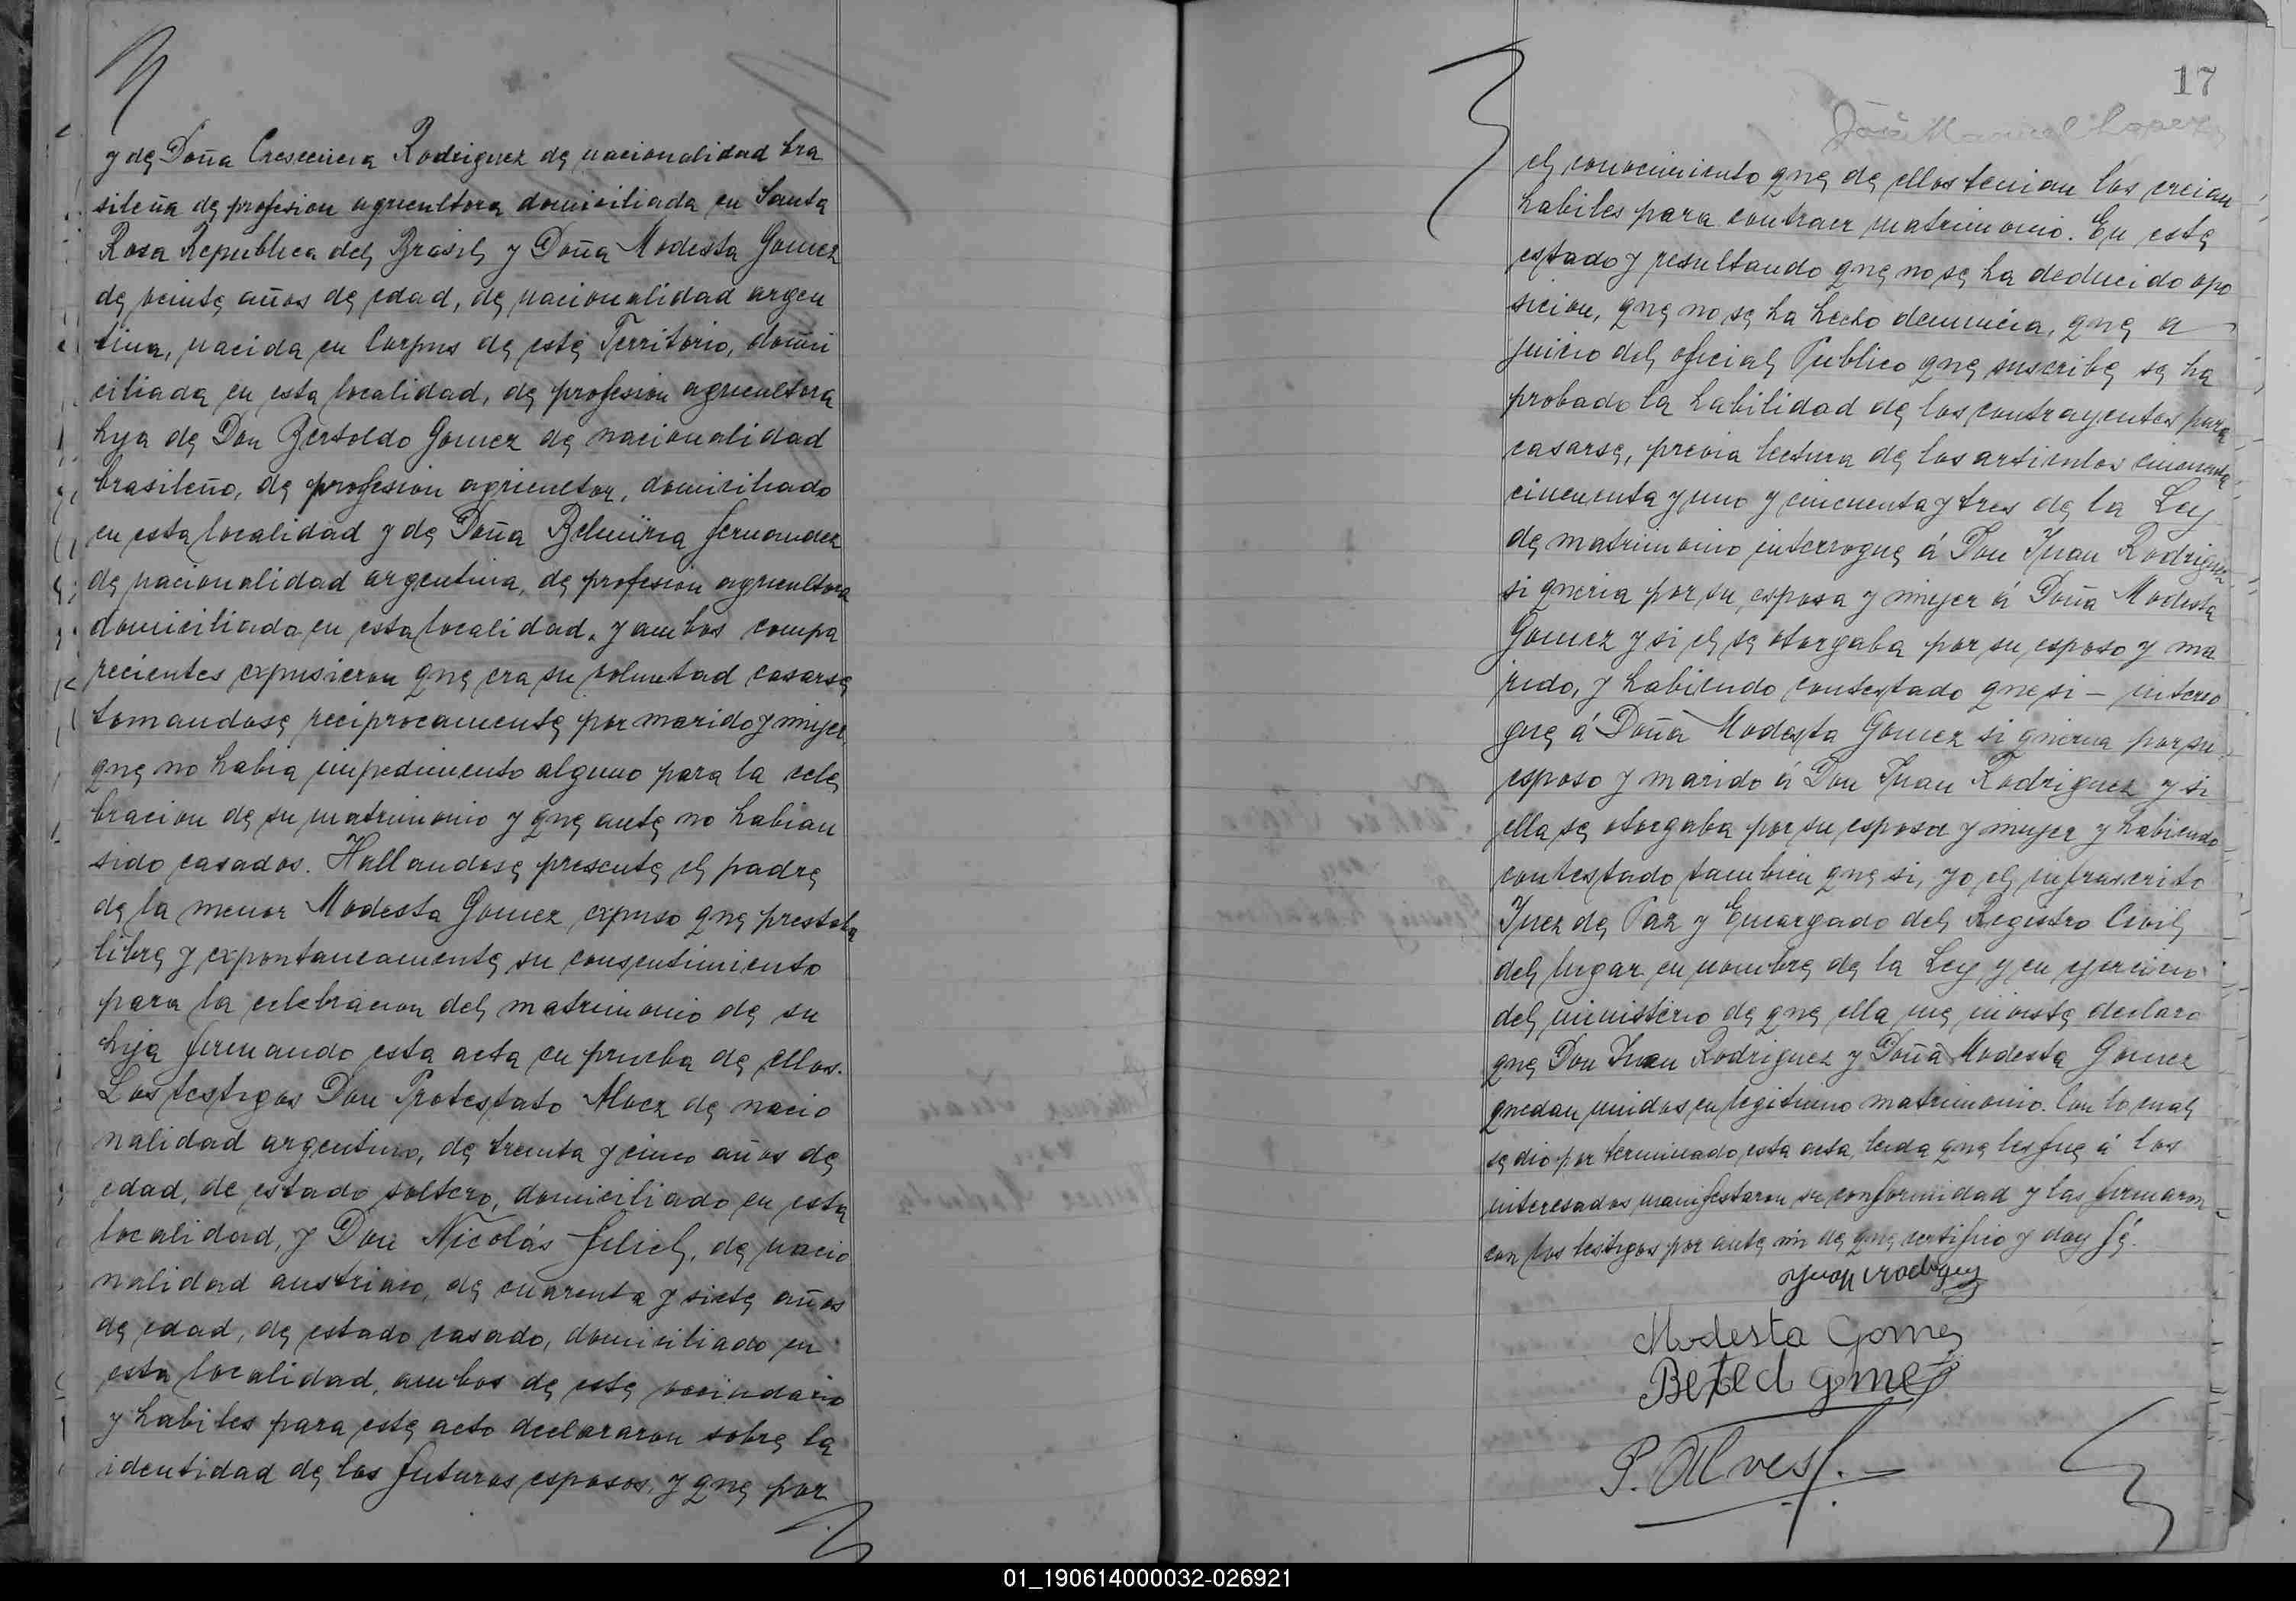 y de Doña Crescencia Rodriguez de nacionalidad bra
sileña de profesion agricultora domiciliada en Santa
Rosa Republica del Brasil y Doña Modesta Gomez
de veinte años de edad, de nacionalidad argen
tina, nacida en Corpus de este Territorio, domi
ciliada en esta localidad, de profesion agricultora
hija de Don Bertoldo Gomez de nacionalidad
brasileño, de profesion agricultor, domiciliado
en esta localidad y de Doña Belmira Fernandez
de nacionalidad argentina, de profesion agricultora
domiciliada en esta localidad. y ambos compa
recientes expusieron que era su voluntad casarse
tomandose reciprocamente por marido y mujer,
que no habia impedimento alguno para la cele
bracion de su matrimonio y que ante no habian
sido casados. Hallandose presente el padre
de la menor Modesta Gomez expuso que prestaba
libre y expontaneamente su consentimiento
para la celebracion del matrimonio de su
hija firmando esta acta en prueba de ellos.
Los testigos Don Protestato Moez de nacio
nalidad argentino, de treinta y cinco años de
edad, de estado soltero, domiciliado en esta
localidad, y Don Nicolás Filich, de nacio
nalidad austriaco, de cuarenta y siete años
de edad, de estado casado, domiciliado en
esta localidad, ambos de este vecindario
y habiles para este acto declararon sobre la
identidad de los futuros esposos, y que por
17
José Manuel Lopez
el conocimiento que de ellos tenian los creian
habiles para contraer matrimonio. En este
estado y resultando que no se ha deducido opo
sicion, que no se ha hecho denuncia, que a
juicio del oficial Publico que suscribe se ha
probado la habilidad de los contrayentes para
casarse, previa lectura de los articulos cincuenta
cincuenta y uno y cincuenta y tres de la Ley
de matrimonio interrogue á Don Juan Rodriguez
si queria por su esposa y mujer á Doña Modesta
Gomez y si el se otorgaba por su esposo y ma
rido, y habiendo contestado que si - interro
gué á Doña Modesta Gomez si queria por su
esposo y marido á Don Juan Rodriguez y si
ella se otorgaba por su esposa y mujer y habiendo
contestado tambien que si, yo el infrascrito
Juez de Paz y Encargado del Registro Civil
del lugar en nombre de la Ley y en ejercicio
del ministerio de que ella me inviste declaro
que Don Juan Rodriguez y Doña Modesta Gomez
quedan unidos en legitimo matrimonio. Con lo cual
se dio por terminado esta acta, leida que les fue á los
interesados manifestaron su conformidad y las firmaron
con los testigos por ante mi de que certifico y doy fé.
Juan Rodrguez
Modesta Gomes
P. Alves
01_190614000032-026921